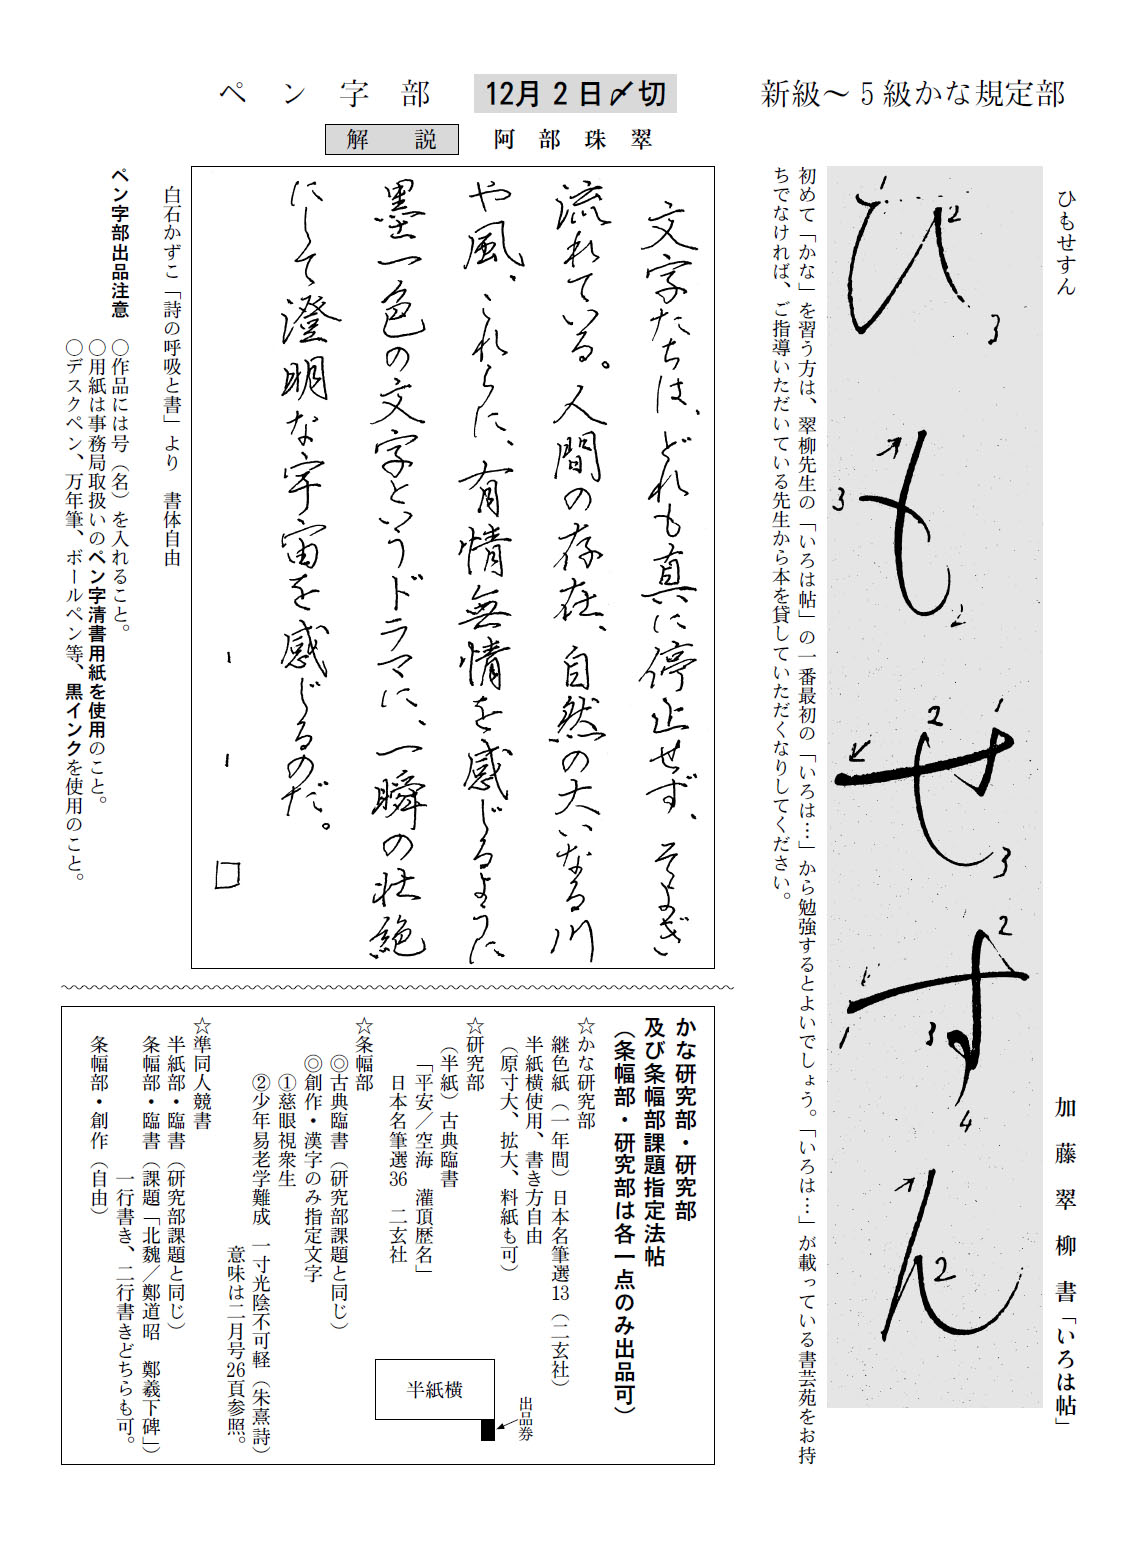 新級～5級かな規定部
ひもせすん
加藤翠柳書「いろは帖」
1
2
3
ひ
3
2
も
1
2
3
せ
1
2
3
4
す
2
ん
初めて「かな」を習う方は、翠柳先生の「いろは帖」の一番最初の「いろは…」から勉強するとよいでしょう。「いろは…」が載っている書芸苑をお持
ちでなければ、ご指導いただいている先生から本を貸していただくなりしてください。
ペン字部
12月2日〆切
解説
阿部珠翠
文字たちは、どれも真に停止せず、そよぎ
流れている。人間の存在、自然の大いなる川
や風、これらに、有情無情を感じるように
墨一色の文字というドラマに、一瞬の壮絶
にして澄明な宇宙を感じるのだ。
白石かずこ「詩の呼吸と書」より 書体自由
ペン字部出品注意 ○作品には号(名)を入れること。
○用紙は事務局取扱いのペン字清書用紙を使用のこと。
○デスクペン、万年筆、ボールペン等、黒インクを使用のこと。
かな研究部・研究部
及び条幅部課題指定法帖
(条幅部・研究部は各一点のみ出品可)
☆かな研究部
継色紙(一年間)日本名筆選13(二玄社)
半紙横使用、書き方自由
(原寸大、拡大、料紙も可)
☆研究部
(半紙)古典臨書
「平安／空海 灌頂歴名」
日本名筆選36 二玄社
半紙横
出品券
☆条幅部
◎古典臨書(研究部課題と同じ)
◎創作・漢字のみ指定文字
①慈眼視衆生
②少年易老学難成 一寸光陰不可軽(朱熹詩)
意味は二月号26頁参照。
☆準同人競書
半紙部・臨書(研究部課題と同じ)
条幅部・臨書(課題「北魏／鄭道昭 鄭羲下碑」)
一行書き、二行書きどちらも可。
条幅部・創作(自由)